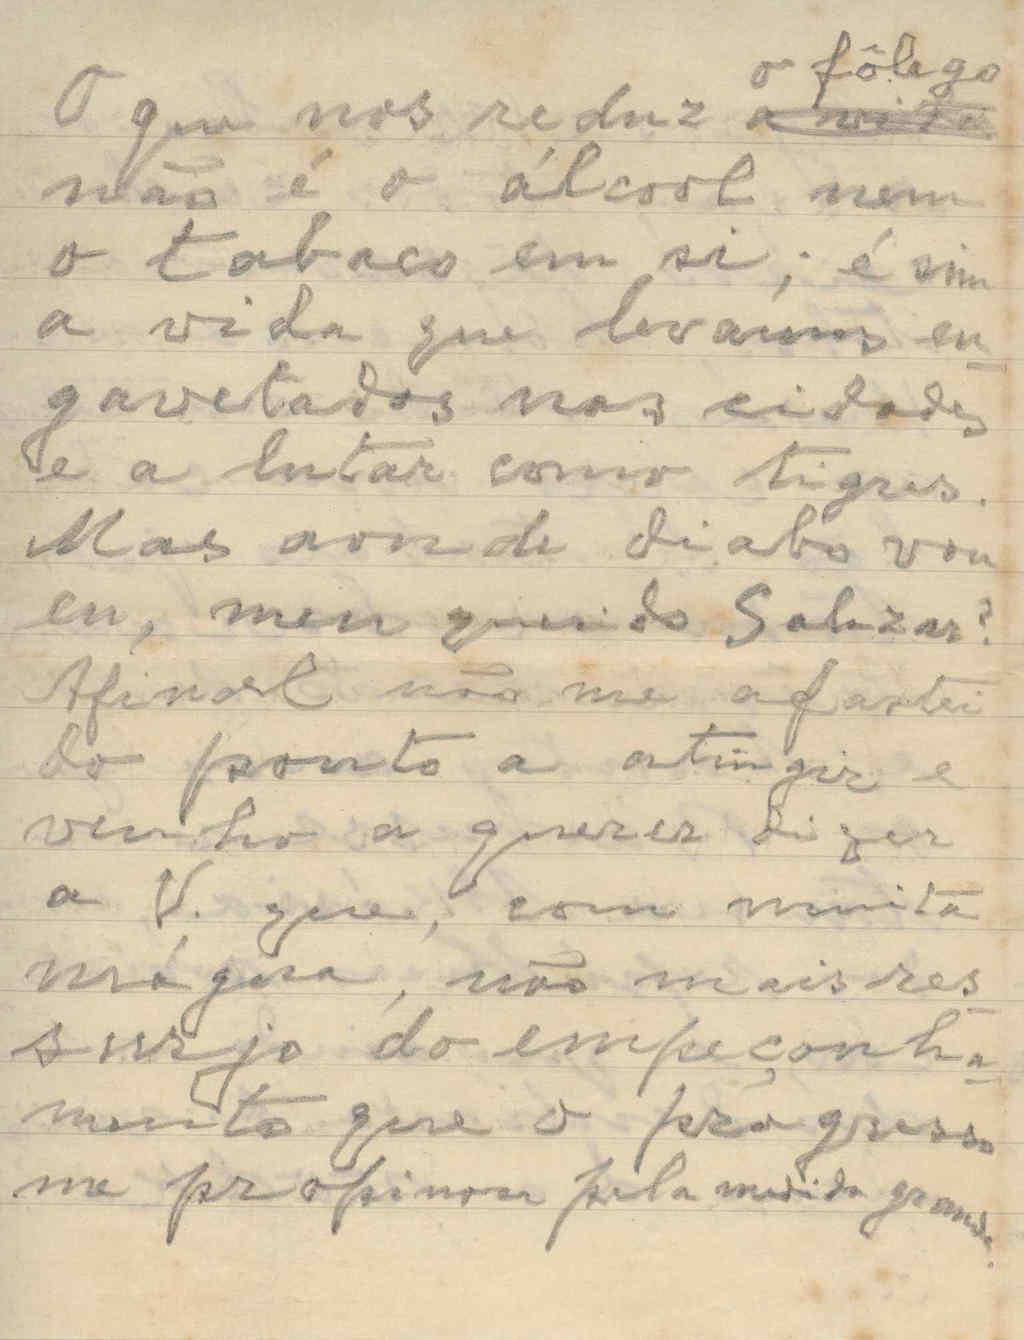 o fôlego
O que nos reduz a vida
não é o álcool nem
o tabaco em si; é sim
a vida que levamos en-
gavetados nas cidades
e a lutar como tigres.
Mas aonde diabo vou
eu, meu querido Salazar?
Afinal não me afastei
do ponto a atingir e
venho a querer dizer
a V. que, com muita
mágua, não mais res-
surjo do empeçonha-
mento que o progresso
me propinou pela medida grande.